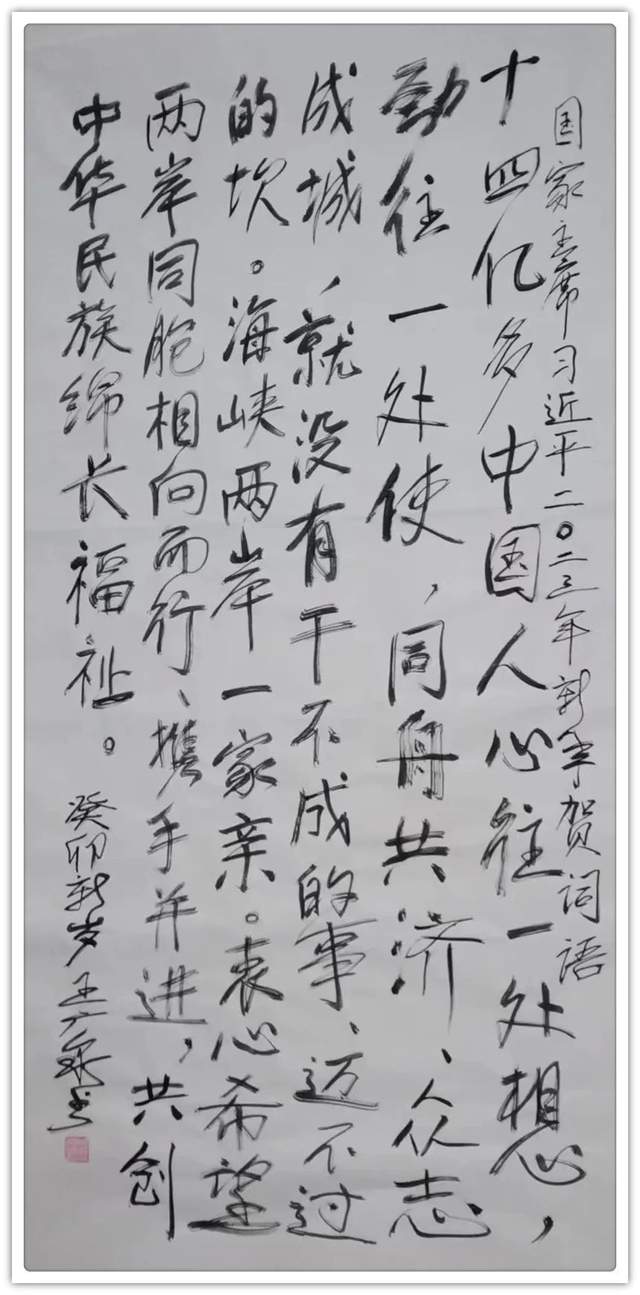 国家主席习近平二〇二三年新年贺词语
十四亿多中国人心往一处想，
劲往一处使，同舟共济、众志
成城，就没有干不成的事、迈不过
的坎。海峡两岸一家亲。衷心希望
两岸同胞相向而行、携手并进，共创
中华民族绵长福祉。
癸卯新岁王广书